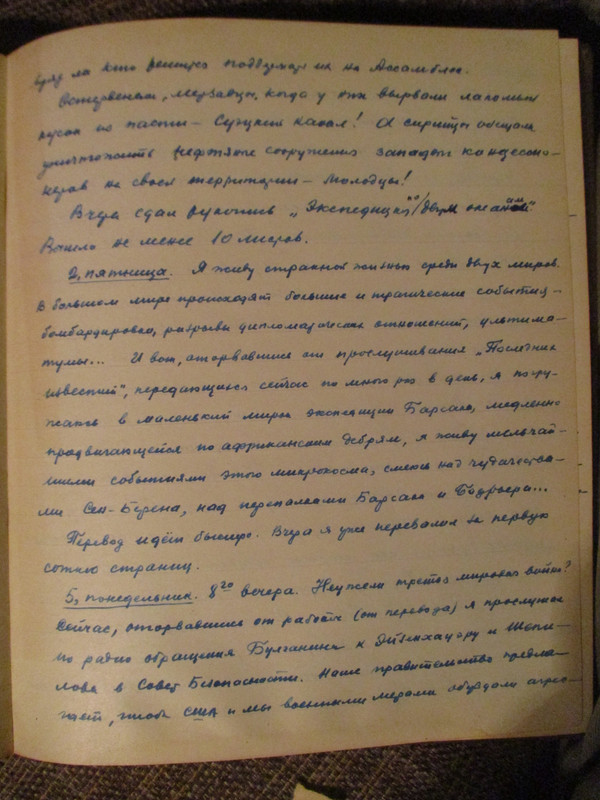 вряд ли кто решится подвезти их на Ассамблею.
Остервенели, мерзавцы, когда у них вырвали лакомый
кусок из пасти – Суэцкий канал! А сирийцы обещали
уничтожить нефтяные сооружения западн. концессио-
неров на своей территории – молодцы!
Вчера сдал рукопись „Экспедиция по двум океанам"
Вышло не менее 10 листов.
2, пятница. Я живу странной жизнью среди двух миров.
В большом мире происходят большие и трагические события –
бомбардировки, разрывы дипломатических отношений, ультима-
тумы... И вот, оторвавшись от прослушивания „Последних
известий", передающихся сейчас по много раз в день, я погру-
жаюсь в маленький мирок экспедиции Барсака, медленно
продвигающейся по африканским дебрям, я живу мельчай-
шими событиями этого микрокосма, смеюсь над чудачества-
ми Сен-Берена, над перепалками Барсака и Бодрьера...
Перевод идёт быстро. Вчера я уже перевалил за первую
сотню страниц.
5, понедельник. 8 го вечера. Неужели третья мировая война?
Сейчас, оторвавшись от работы (от перевода) я прослушал
по радио обращения Булганина к Эйзенхауэру и Шепи-
лова в Совет Безопасности. Наше правительство предла-
гает, чтобы США и мы военными мерами обуздали агрес-